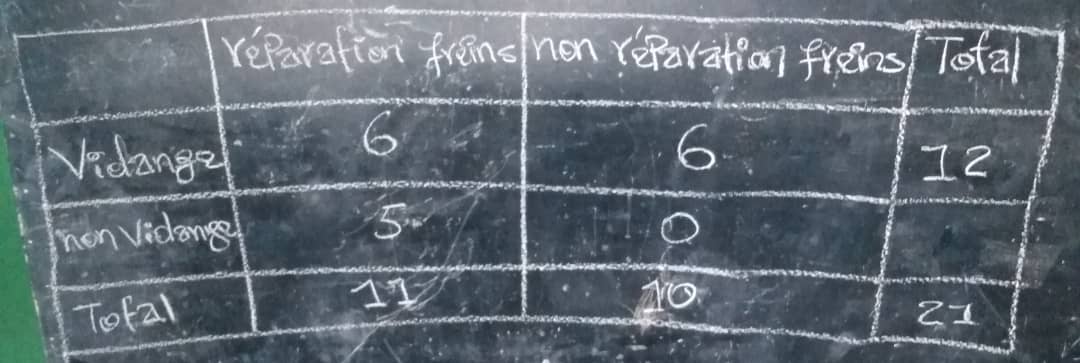 réparation freins non réparation freins Total
Vidange 6 6 12
non vidange 5 0
Total 11 10 21